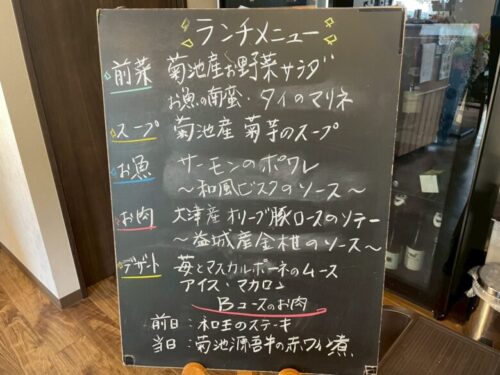 ランチメニュー
前菜 菊池産お野菜サラダ
お魚の南蛮・タイのマリネ
スープ 菊池産 菊芋のスープ
お魚 サーモンのポワレ
〜和風ビスクのソース〜
お肉 大津産オリーブ豚ロースのソテー
〜益城産金柑のソース〜
デザート 苺とマスカルポーネのムース
アイス・マカロン
Bコースのお肉
前日：和王のステキ
当日：菊池源吾牛の赤ワイン煮